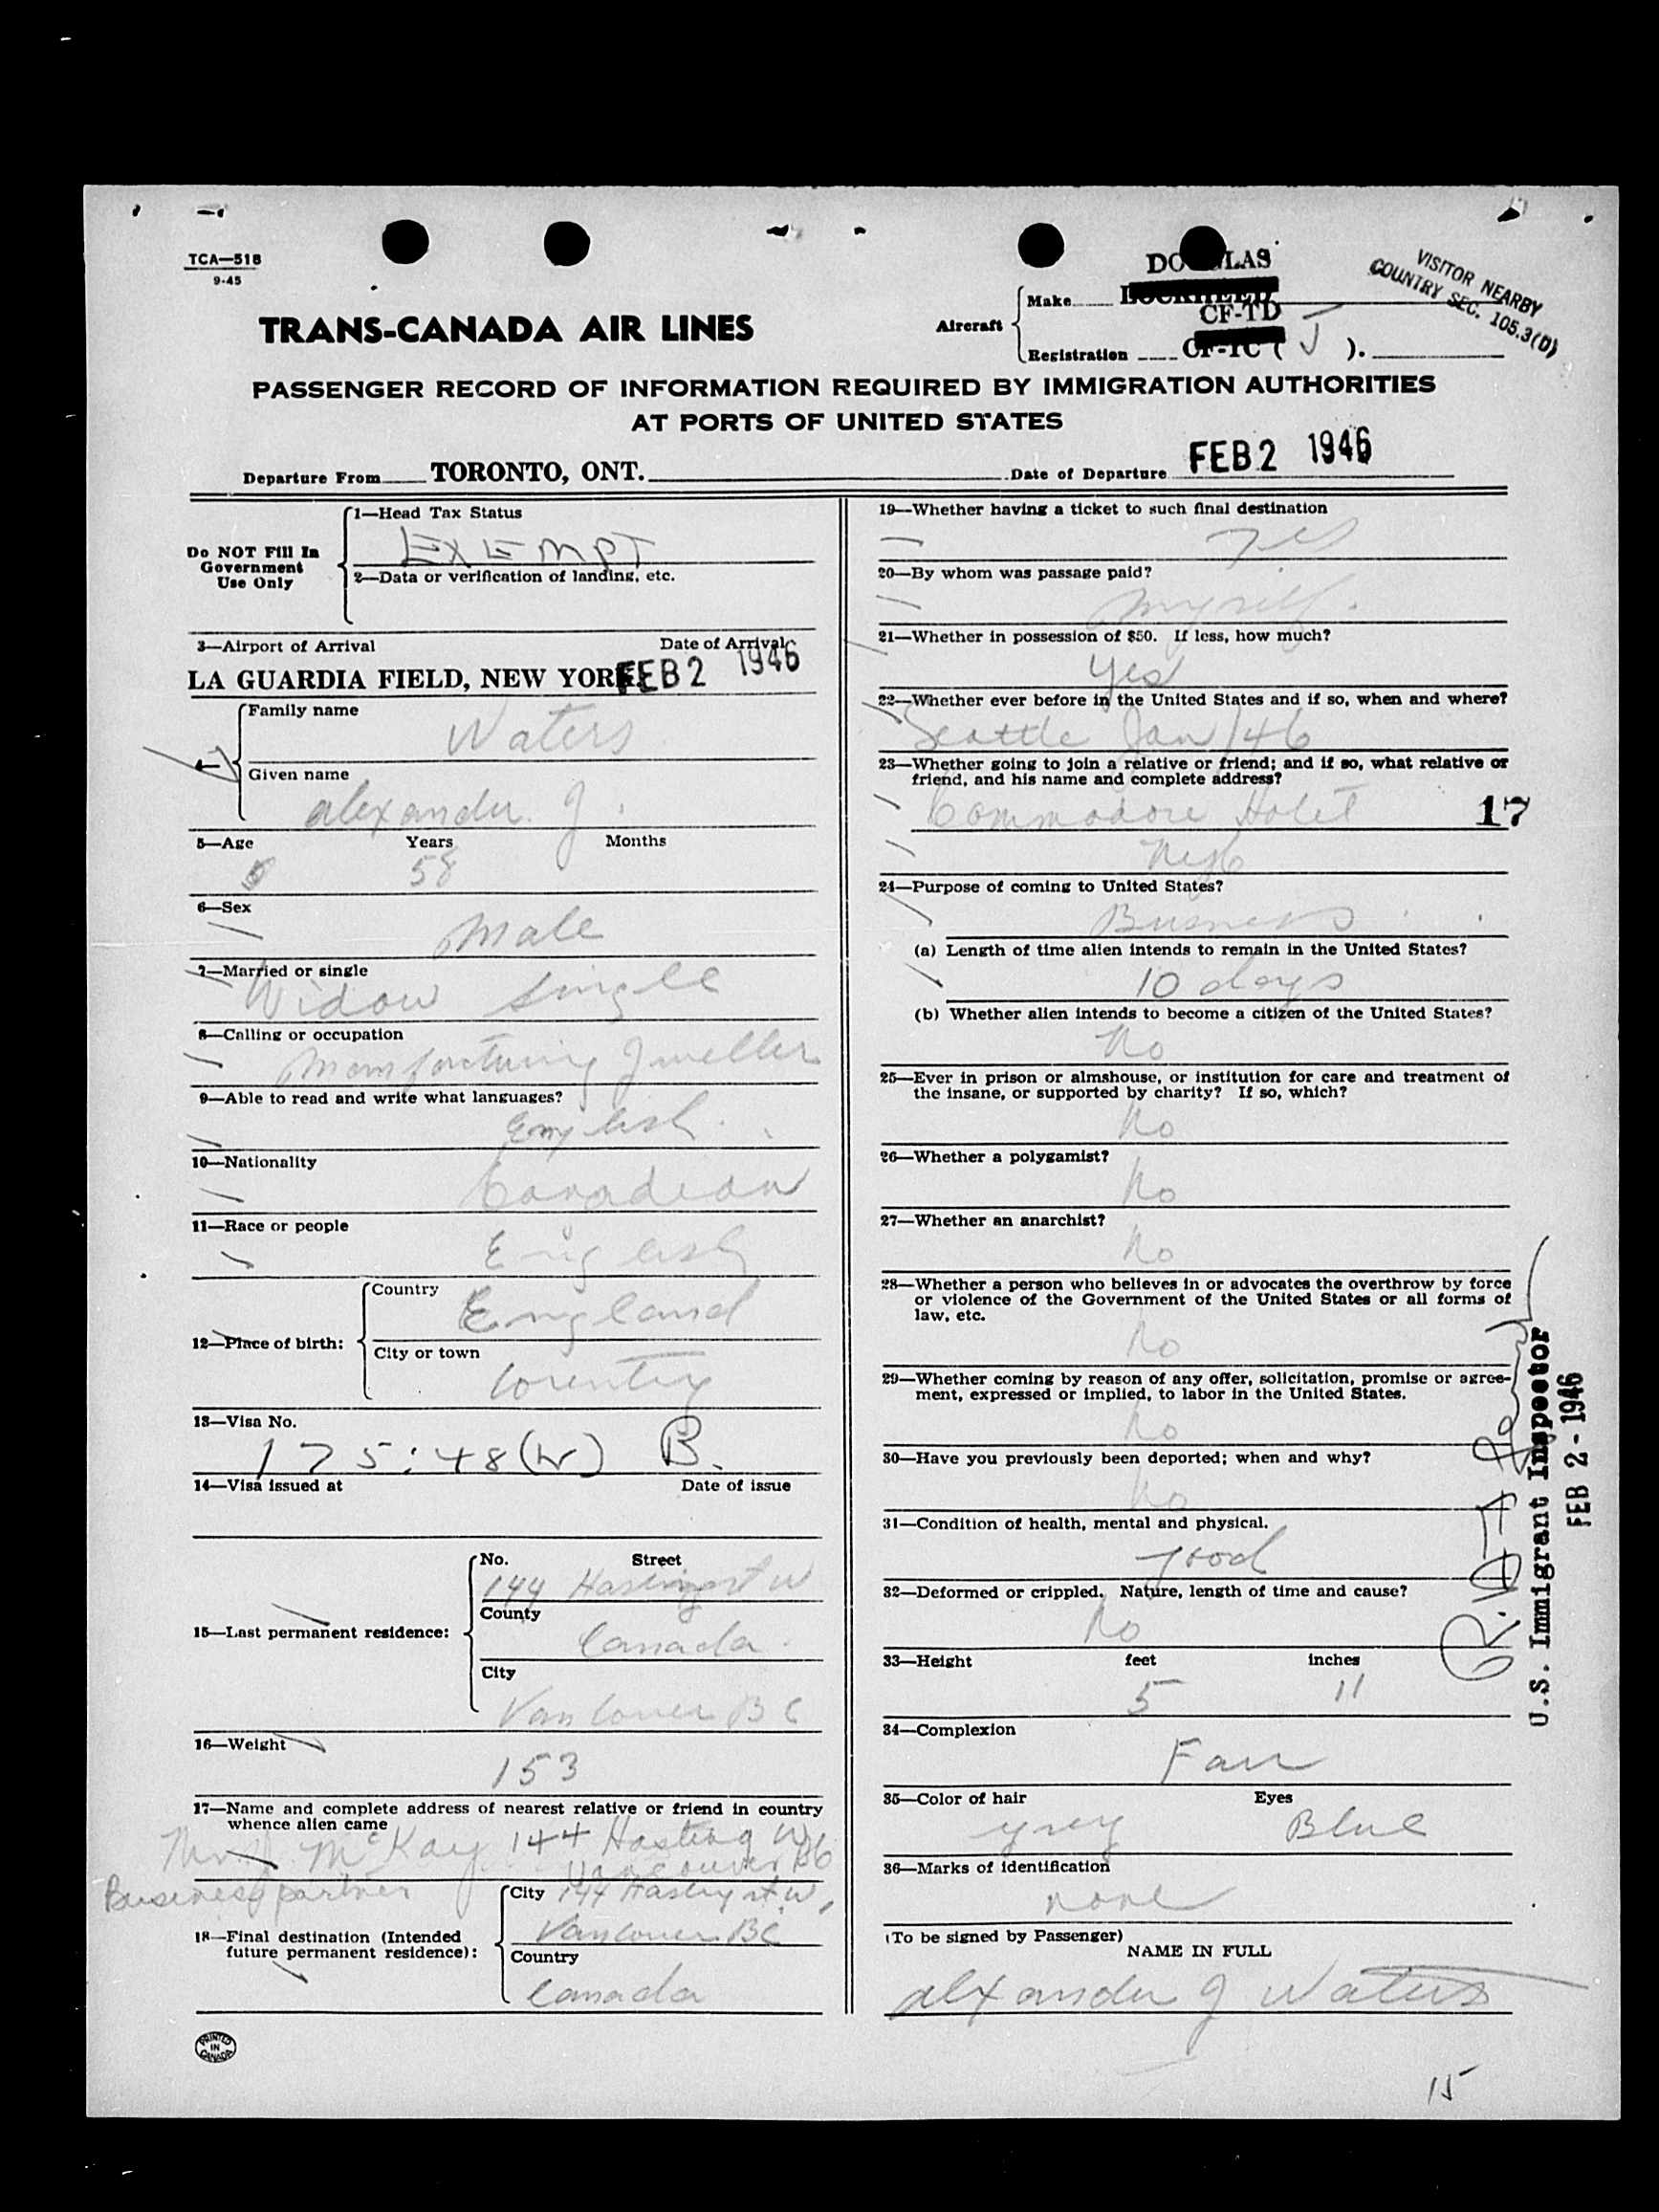 TCA—518
9-45
DOUGLAS
VISITOR NEARBY
COUNTRY SEC. 105.3(D)
Aircraft
Make LOCKHEED
CF-TD
Registration CF-TC ( J ).
TRANS-CANADA AIR LINES
PASSENGER RECORD OF INFORMATION REQUIRED BY IMMIGRATION AUTHORITIES
AT PORTS OF UNITED STATES
Departure From TORONTO, ONT. Date of Departure FEB 2 1946
Do NOT Fill In
Government
Use Only
1—Head Tax Status
EXEMPT
2—Data or verification of landing, etc.
3—Airport of Arrival Date of Arrival
LA GUARDIA FIELD, NEW YORK FEB 2 1946
4—
Family name
Waters
Given name
alexander. J.
5—Age Years Months
58
6—Sex
Male
7—Married or single
Widow single
8—Calling or occupation
Manfacturing Jweller
9—Able to read and write what languages?
English
10—Nationality
Canadian
11—Race or people
English
12—Place of birth:
Country
England
City or town
Coventry
13—Visa No.
175:48(W) B.
14—Visa issued at Date of issue
15—Last permanent residence:
No. Street
144 Hasting st W
County
Canada
City
Vancouver BC
16—Weight
153
17—Name and complete address of nearest relative or friend in country
whence alien came
Mr J. McKay 144 Hasting W
Vancouver BC
Business partner
18—Final destination (Intended
future permanent residence):
City 144 Hasting st W,
Vancouver BC
Country
Canada
PRINTED
IN
CANADA
19—Whether having a ticket to such final destination
yes
20—By whom was passage paid?
myself.
21—Whether in possession of $50. If less, how much?
yes
22—Whether ever before in the United States and if so, when and where?
Seattle Jan/46
23—Whether going to join a relative or friend; and if so, what relative or
friend, and his name and complete address?
Commodore Hotel 17
24—Purpose of coming to United States?
Business
(a) Length of time alien intends to remain in the United States?
10 days
(b) Whether alien intends to become a citizen of the United States?
No
25—Ever in prison or almshouse, or institution for care and treatment of
the insane, or supported by charity? If so, which?
No
26—Whether a polygamist?
No
27—Whether an anarchist?
No
28—Whether a person who believes in or advocates the overthrow by force
or violence of the Government of the United States or all forms of
law, etc.
No
29—Whether coming by reason of any offer, solicitation, promise or agree-
ment, expressed or implied, to labor in the United States.
No
30—Have you previously been deported; when and why?
No
31—Condition of health, mental and physical.
good
32—Deformed or crippled. Nature, length of time and cause?
No
33—Height feet inches
5 11
34—Complexion
Fair
35—Color of hair Eyes
grey Blue
36—Marks of identification
none
(To be signed by Passenger)
NAME IN FULL
alexander J Waters
U.S. Immigrant Inspector
FEB 2 - 1946
15